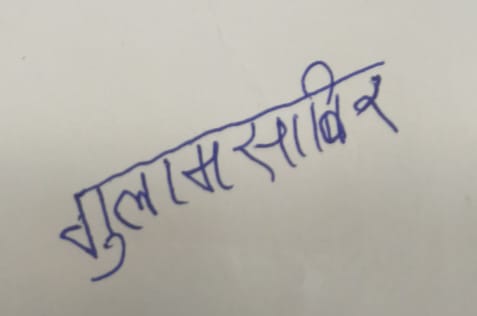 गुलामसाबिर